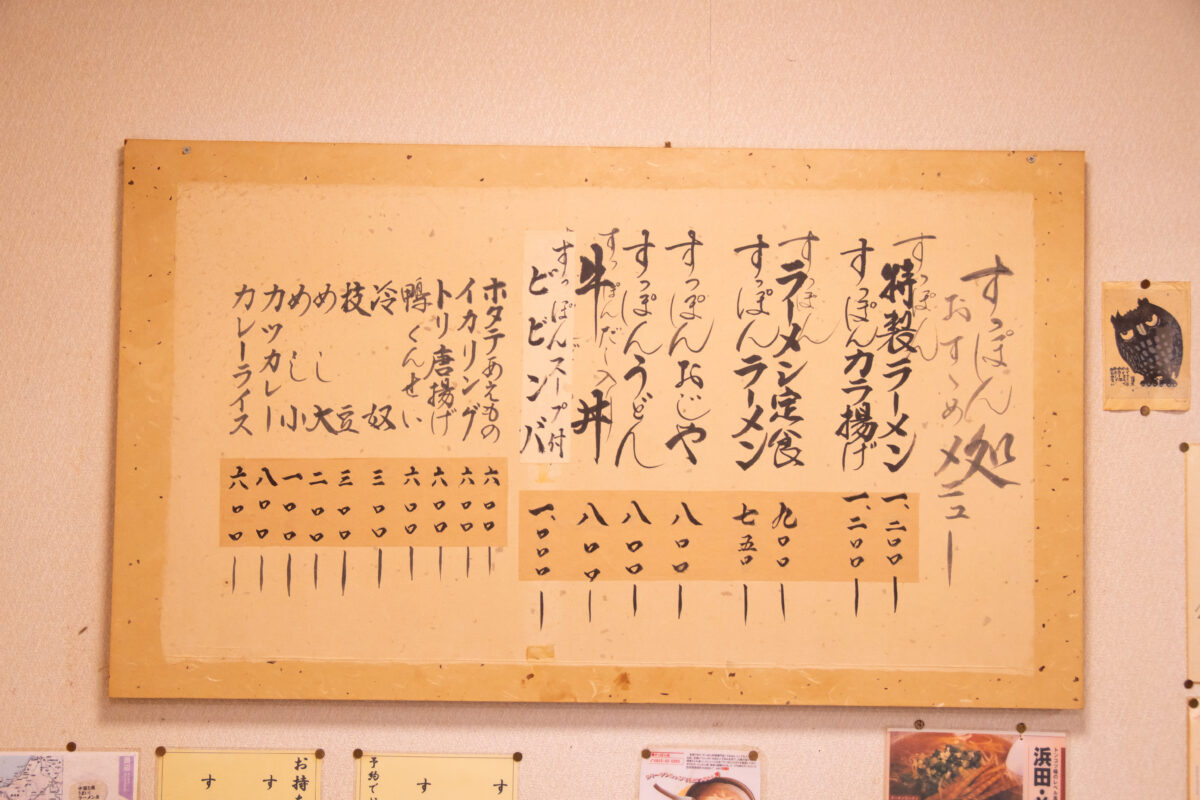 すっぽん処
おすゝめメニュー
すっぽん
特製ラーメン 一、二〇〇ー
すっぽんカラ揚げ 一、二〇〇ー
すっぽん
ラーメン定食 九〇〇ー
すっぽんラーメン 七五〇ー
すっぽんおじや 八〇〇ー
すっぽんうどん 八〇〇ー
すっぽんだし入り
牛丼 八〇〇ー
すっぽんスープ付
ビビンバ 一、〇〇〇ー
ホタテあえもの 六〇〇ー
イカリング 六〇〇ー
トリ唐揚げ 六〇〇ー
鴨くんせい 六〇〇ー
冷奴 三〇〇ー
枝豆 三〇〇ー
めし大 二〇〇ー
めし小 一〇〇ー
カツカレー 八〇〇ー
カレーライス 六〇〇ー
浜田・
お持
す
す
予約で
す
す